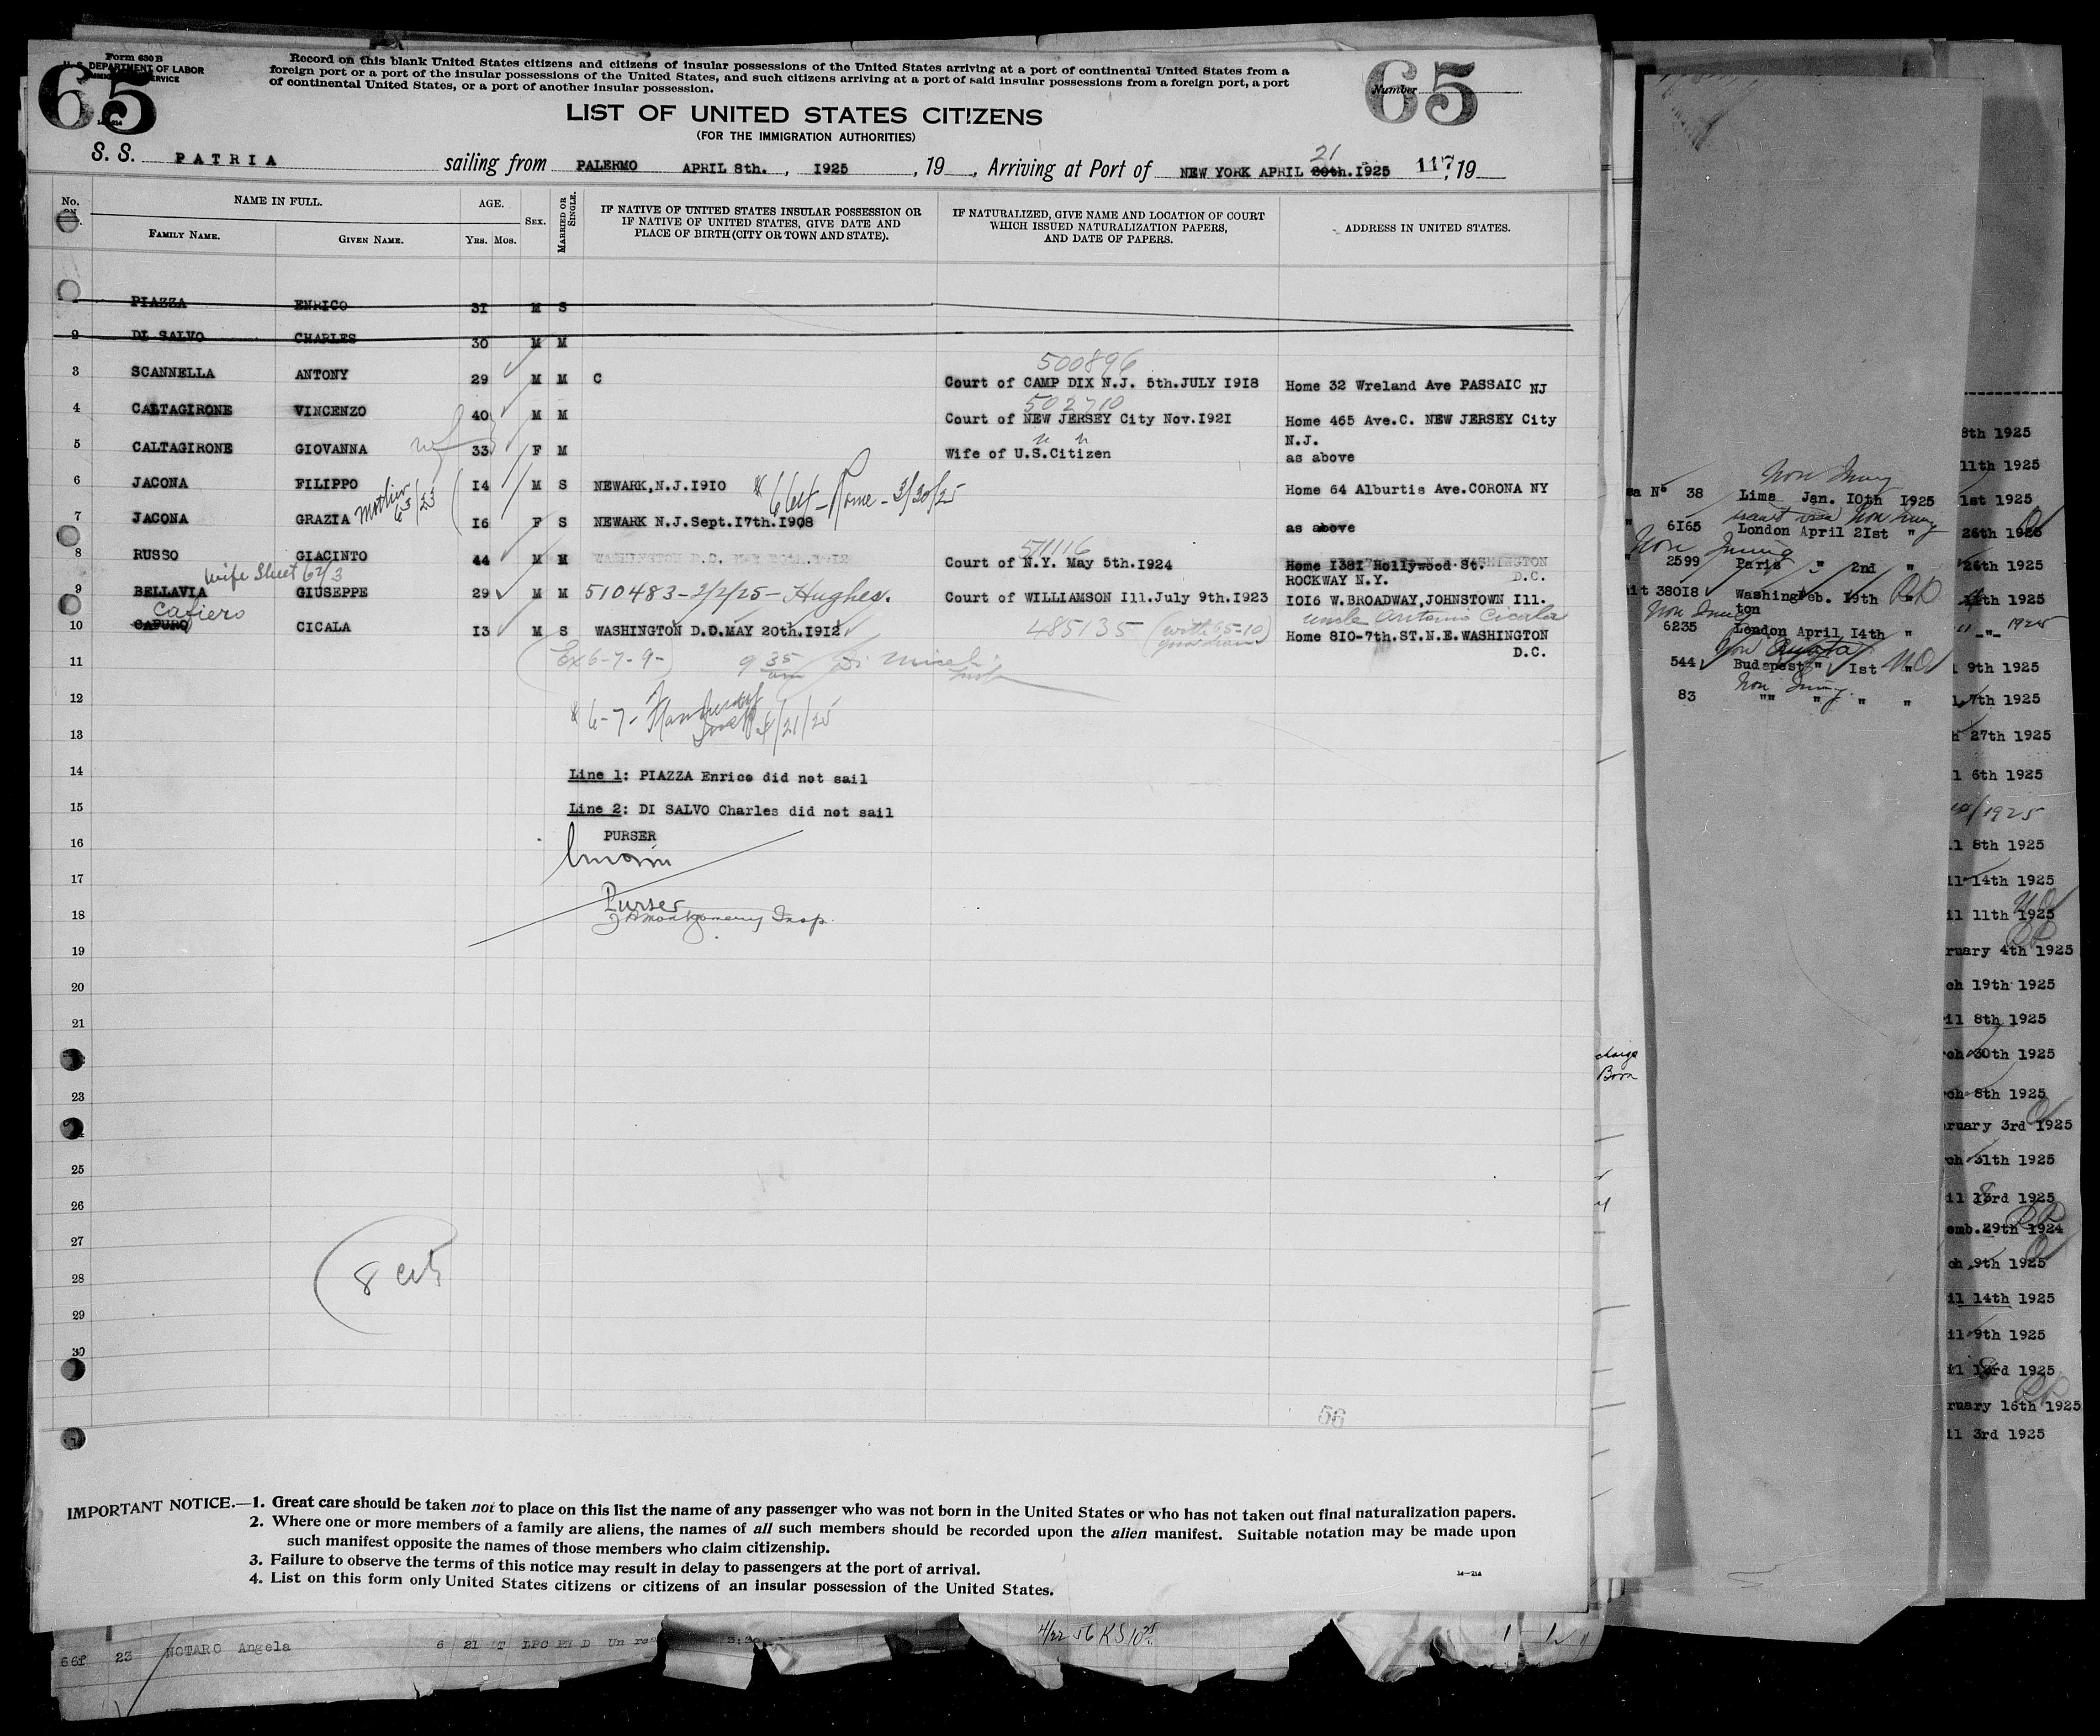 65
Form 630 B
U. S. DEPARTMENT OF LABOR
IMMIGRATION SERVICE
Record on this blank United States citizens and citizens of insular possessions of the United States arriving at a port of continental United States from a
foreign port or a port of the insular possessions of the United States, and such citizens arriving at a port of said insular possessions from a foreign port, a port
of continental United States, or a port of another insular possession.
65
Number
LIST OF UNITED STATES CITIZENS
(FOR THE IMMIGRATION AUTHORITIES)
S. S. PATRIA sailing from PALERMO APRIL 8th. , 1925 , 19 , Arriving at Port of NEW YORK APRIL 20th. 21 1925 117 , 19
No. NAME IN FULL. AGE. SEX. MARRIED OR SINGLE.
FAMILY NAME. GIVEN NAME. YRS. MOS.
IF NATIVE OF UNITED STATES INSULAR POSSESSION OR
IF NATIVE OF UNITED STATES, GIVE DATE AND
PLACE OF BIRTH (CITY OR TOWN AND STATE).
IF NATURALIZED, GIVE NAME AND LOCATION OF COURT
WHICH ISSUED NATURALIZATION PAPERS,
AND DATE OF PAPERS.
ADDRESS IN UNITED STATES.
PIAZZA ENRICO 31 M S
2 DI SALVO CHARLES 30 M M
500896
3 SCANNELLA ANTONY 29 M M C Court of CAMP DIX N.J. 5th.JULY 1918 Home 32 Wreland Ave PASSAIC NJ
502710
4 CALTAGIRONE VINCENZO 40 M M Court of NEW JERSEY City Nov.1921 Home 465 Ave.C. NEW JERSEY City
N.J.
5 CALTAGIRONE GIOVANNA 33 F M Wife of U.S.Citizen as above
6 JACONA FILIPPO 14 M S NEWARK,N.J.1910 Rome - 3/20/25 Home 64 Alburtis Ave.CORONA NY
mother 63/23
7 JACONA GRAZIA 16 F S NEWARK N.J.Sept.17th.1908 as above
511116
8 RUSSO GIACINTO 44 M M Court of N.Y. May 5th.1924 Home 1381 Hollywood St.
ROCKWAY N.Y. D.C.
Wife Sheet 67/3
9 BELLAVIA GIUSEPPE 29 M M 510483-2/2/25- Hughes. Court of WILLIAMSON Ill.July 9th.1923 1016 W.BROADWAY,JOHNSTOWN Ill.
Cafiero
uncle Antonio Cicala
10 CAFURO CICALA 13 M S WASHINGTON D.C.MAY 20th.1912 485135 (with 65-10 guardian) Home 810-7th.ST.N.E.WASHINGTON
D.C.
11 Ex 6-7-9- 9 35 am Di Miceli
12 6-7- 4/21/25
13
14 Line 1: PIAZZA Enrico did not sail
15 Line 2: DI SALVO Charles did not sail
PURSER
16
17
Purser
18 Montgomery Insp.
19
20
21
23
25
26
27
28 8 cits
29
30
56
IMPORTANT NOTICE.—1. Great care should be taken not to place on this list the name of any passenger who was not born in the United States or who has not taken out final naturalization papers.
2. Where one or more members of a family are aliens, the names of all such members should be recorded upon the alien manifest. Suitable notation may be made upon
such manifest opposite the names of those members who claim citizenship.
3. Failure to observe the terms of this notice may result in delay to passengers at the port of arrival.
4. List on this form only United States citizens or citizens of an insular possession of the United States.
14—214
66f 23 NOTARO Angela 6 21
Non Immig
Nº 38 Lima Jan. 10th 1925
6165 London April 21st "
Non Immig
2599 Paris " 2nd "
38018 Washing Feb. 19th
ton
Non Immig
6235 London April 14th "
Non Quota
544 Budapest " 1st "
Non Immig.
83 "" " " "
8th 1925
11th 1925
1st 1925
26th 1925
26th 1925
4th 1925
"-"- 1925
9th 1925
7th 1925
27th 1925
6th 1925
1925
8th 1925
14th 1925
11th 1925
ruary 4th 1925
ch 19th 1925
il 8th 1925
ch 30th 1925
ch 8th 1925
ruary 3rd 1925
ch 31th 1925
il 13rd 1925
emb.29th 1924
ch 9th 1925
il 14th 1925
il 9th 1925
il 13rd 1925
ruary 16th 1925
il 3rd 1925
Born